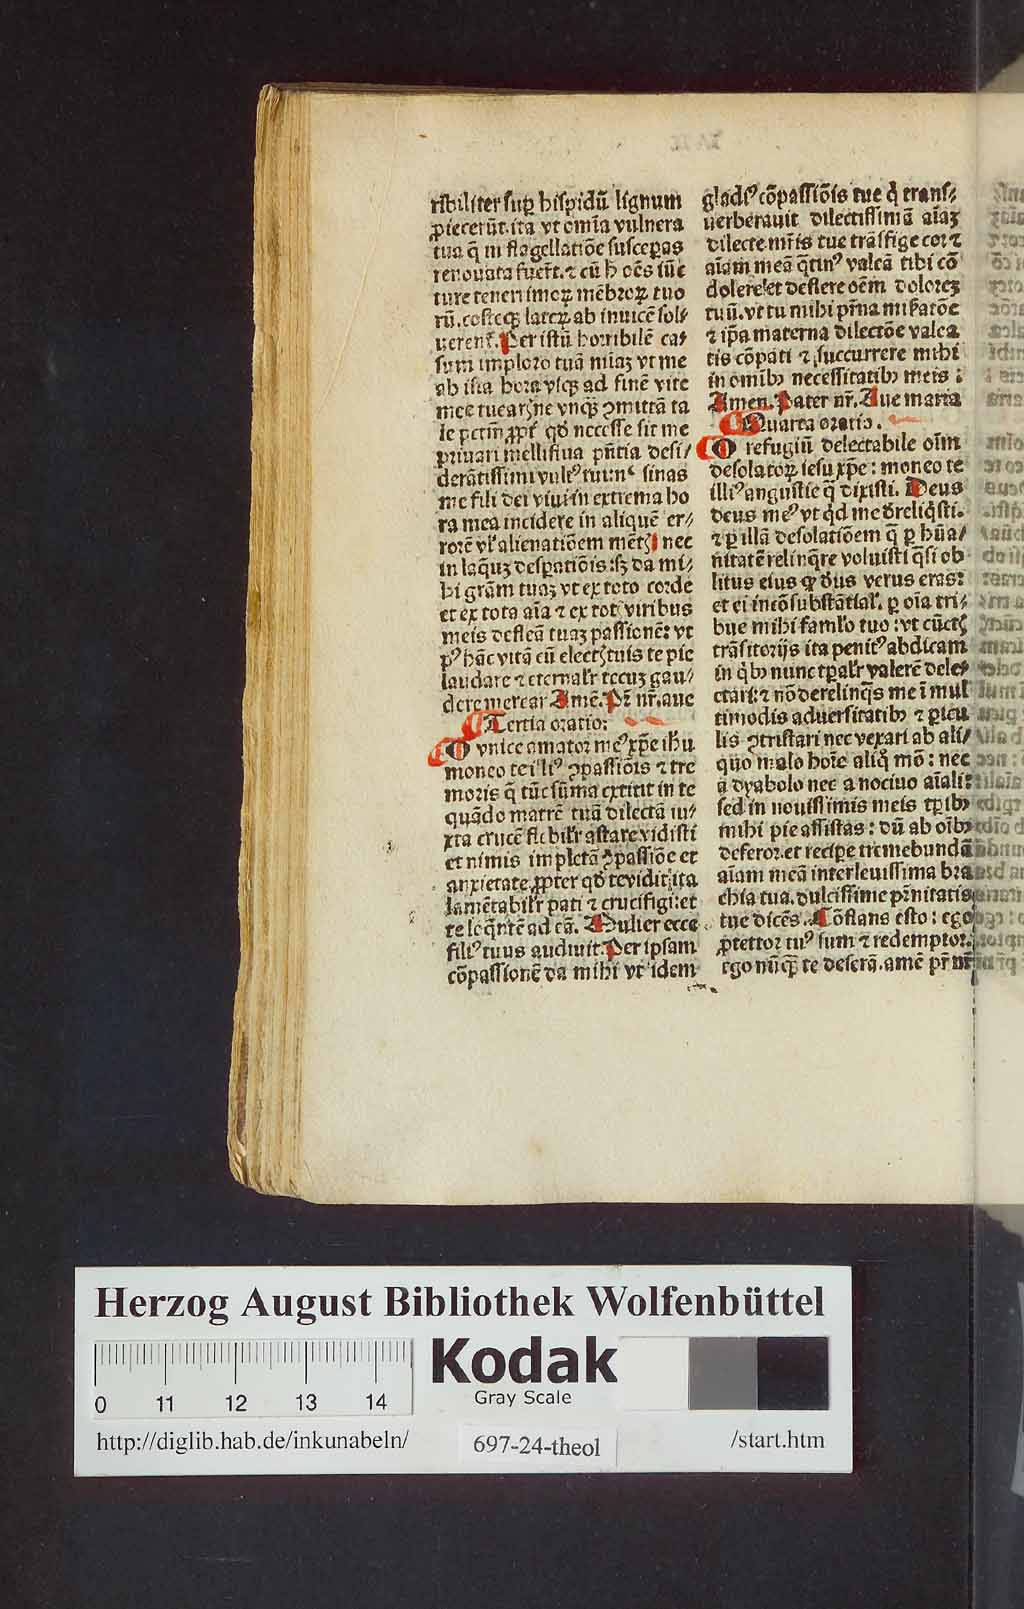 ribiliter sup hispidū lignum
ꝓiecerūt. ita vt omīa vulnera
tua q̄ in flagellatiōe susceꝑas
renouata fuer̄t. ⁊ cū h̄ oēs iūc
ture teneri imoꝝ mēbroꝝ tuo
rū. costeqꝫ lateꝝ ab inuicē sol⸗
uerent̄. Per istū horribilē ca⸗
sum imploro tuā miāꝫ vt me
ab ista hora vsqꝫ ad finē vite
mee tuearꝭ ne vnqꝫ ꝯmittā ta
le pctm̄ ꝓpt̄ qđ necesse sit me
priuari melliflua pn̄tia desi⸗
derātissimi vultꝰ tui: nͨ sinas
me fili dei viui in extrema ho
ra mea incidere in aliquē er⸗
rorē vl̓ alienatiōem mētꝭ nec
in laq̄uꝫ despatiōis: sꝫ da mi⸗
hi grām tuaꝫ vt ex toto corde
et ex tota aīa ⁊ ex totꝭ viribus
meis defleā tuaꝫ passionē: vt
pꝰ hāc vitā cū electꝭ tuis te pie
laudare ⁊ eternalr̓ tecuꝫ gau⸗
dere merear Amē. Pr̄ nr̄. aue
Tertia oratio:
O vnice amator meꝰ xp̄e ih̄u
moneo te illiꝰ ꝯpassiōis ⁊ tre
moris q̄ tūc sūma extitit in te
quādo matrē tuā dilectā iu⸗
xta crucē flebilr̓ astare vidisti
et nimis impletā ꝯpassiōe et
anxietate. ꝓpter qđ te vidit ita
lamētabilr̓ pati ⁊ crucifigi: et
te loq̄ntē ad eā. Mulier ecce
filiꝰ tuus audiuit. Per ipsam
cōpassionē da mihi vt idem
gladiꝰ cōpassiōis tue q̓ trans⸗
uerberauit dilectissimā aīaꝫ
dilecte mr̄is tue trāsfige cor ⁊
aīam meā q̄tinꝰ valeā tibi cō
dolere et deflere oēm doloreꝫ
tuū. vt tu mihi pr̄na mīseratōe
⁊ ip̄a materna dilectōe valea
tis cōpati ⁊ succurrere mihi
in omībꝫ necessitatibꝫ meis:
Amen. Pater nr̄. Aue maria
Quarta oratio.
O refugiū delectabile oīm
desolatoꝝ iesu xp̄e: moneo te
illiꝰ angustie q̄ dixisti. Deus
deus meꝰ vt qd me dereliq̓sti.
⁊ ꝑ illā desolatiōem q̄ ꝑ hūa⸗
nitatē relinq̄re voluisti q̄si ob
litus eius qđ deus verus eras:
et ei incōsubstātial̓. ꝑ oīa tri⸗
bue mihi famlo tuo: vt cūctꝭ
trāsitorijs ita penitꝰ abdicam
in q̓bꝫ nunc tꝑalr̓ valerē dele⸗
ctari: ⁊ nō derelinq̄s me ī mul
timodis aduersitatibꝫ ⁊ ꝑicu
lis ꝯtristari nec vexari ab ali⸗
quo malo hoīe aliq̓ mō: nec
a dyabolo nec a nociuo aīali:
sed in nouissimis meis tꝑibꝫ
mihi pie assistas: dū ab oībꝫ
deferor. et recipe tremebundā
aīam meā inter leuissima bra
chia tua. dulcissime pr̄nitatis
tue dicēs. Cōstans esto: ego
ꝓtettor tuꝰ sum ⁊ redemptor.
ego nūqꝫ te deserā. amē pr̄ nr̄
Herzog August Bibliothek Wolfenbüttel
0 11 12 13 14
Kodak
Gray Scale
http://diglib.hab.de/inkunabeln/
697-24-theol
/start.htm